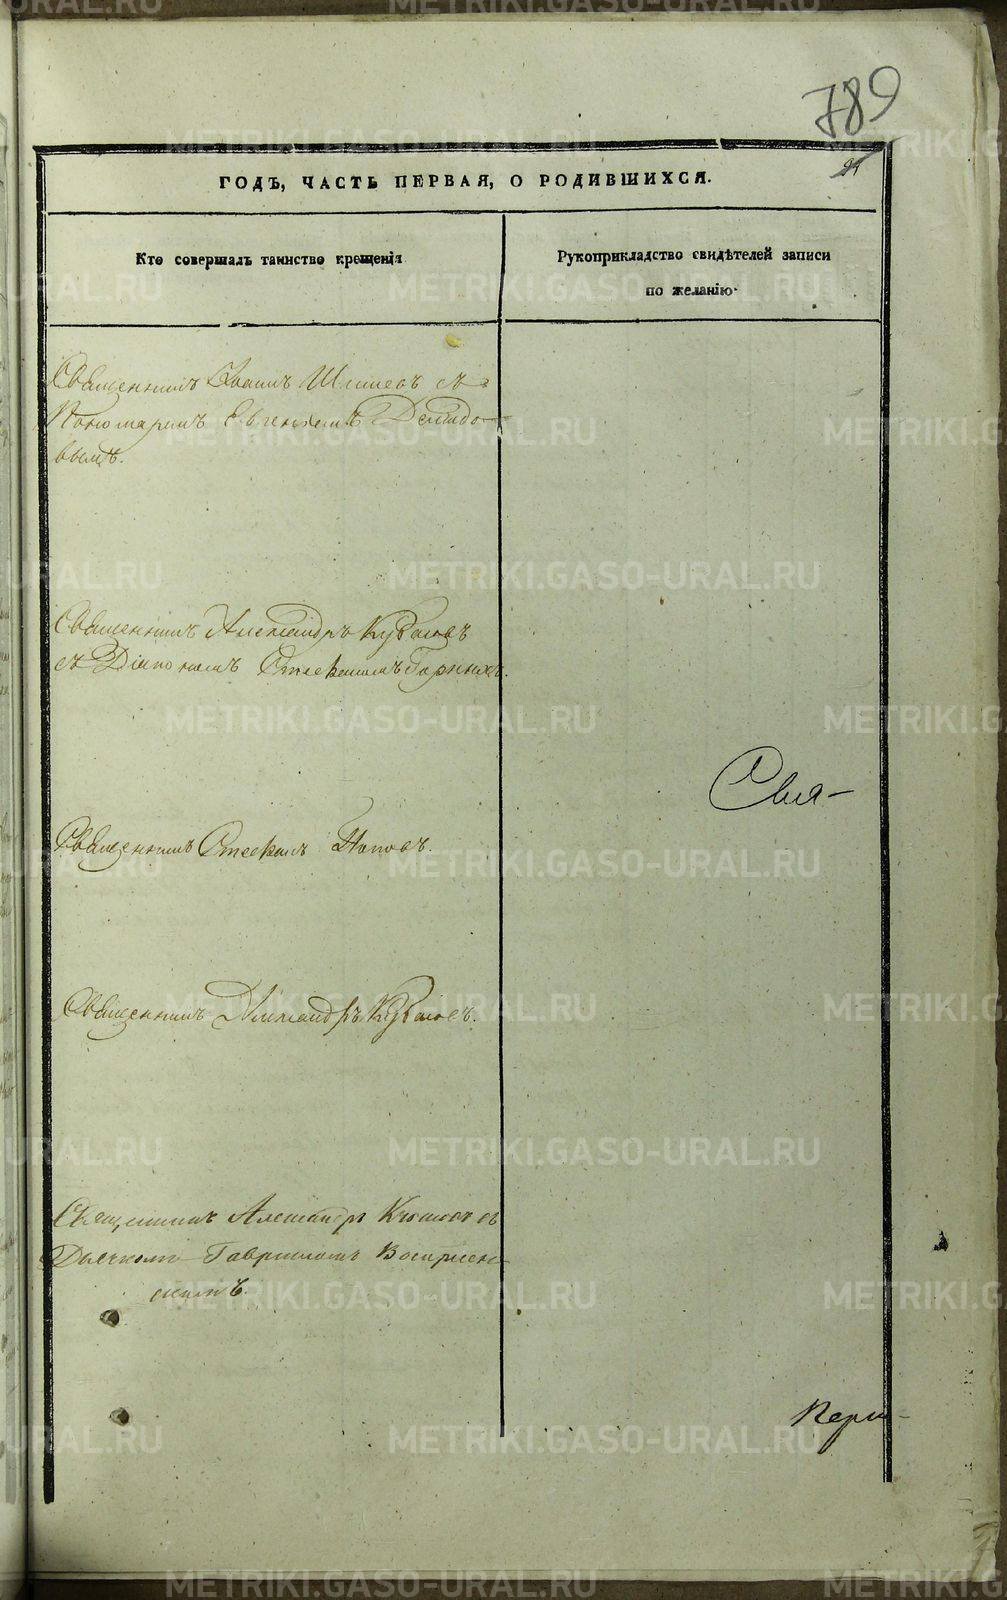 789
ГОДЪ, ЧАСТЬ ПЕРВАЯ, О РОДИВШИХСЯ.
Кто совершалъ таинство крещенія
Рукоприкладство свидѣтелей записи
по желанію
Священникъ Іоаннъ съ
Пономаремъ Евгеніемъ Демидо-
вымъ.
Священникъ Александръ
съ Діакономъ Стефаномъ Горныхъ.
Свя-
Священникъ Стефанъ Поповъ.
Священникъ Александръ
Священникъ Александръ съ
Дьячкомъ Гавриломъ Воскресен-
скимъ.
METRIKI.GASO-URAL.RU